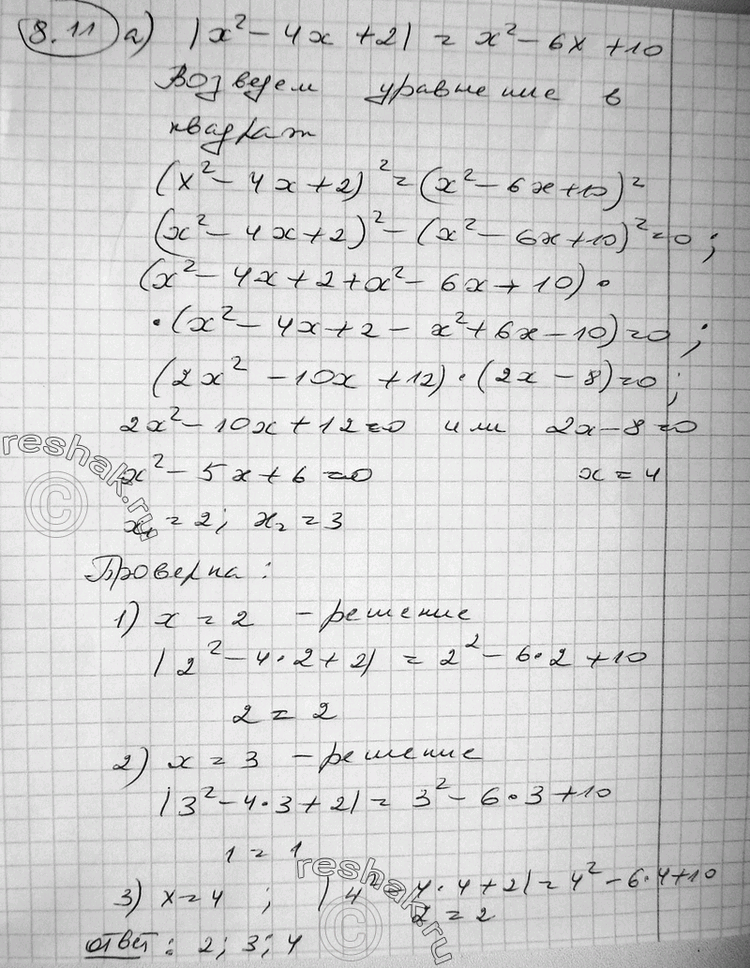 8.11 а) |x² - 4x + 2| = x² - 6x + 10
Возведем уравнение в
квадрат
(x² - 4x + 2)² = (x² - 6x + 10)²
(x² - 4x + 2)² - (x² - 6x + 10)² = 0;
(x² - 4x + 2 + x² - 6x + 10) ·
· (x² - 4x + 2 - x² + 6x - 10) = 0;
(2x² - 10x + 12) · (2x - 8) = 0;
2x² - 10x + 12 = 0 или 2x - 8 = 0
x² - 5x + 6 = 0 x = 4
x₁ = 2; x₂ = 3
Проверка:
1) x = 2 - решение
|2² - 4·2 + 2| = 2² - 6·2 + 10
2 = 2
2) x = 3 - решение
|3² - 4·3 + 2| = 3² - 6·3 + 10
1 = 1
3) x = 4 ; |4² - 4·4 + 2| = 4² - 6·4 + 10
2 = 2
ответ: 2; 3; 4
reshak.ru
©
reshak.ru
©